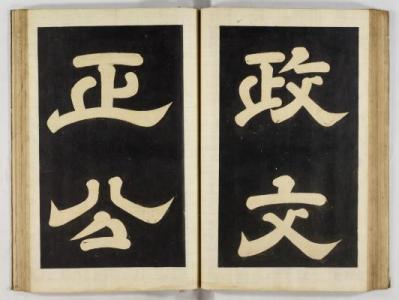 政文
正公